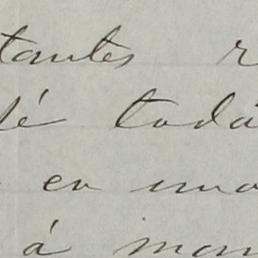 tantes r
fé toda
en una
á man